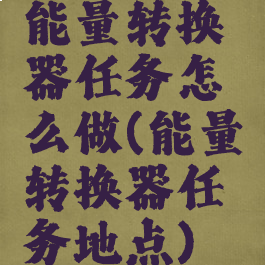 能量转换
器任务怎
么做(能量
转换器任
务地点)